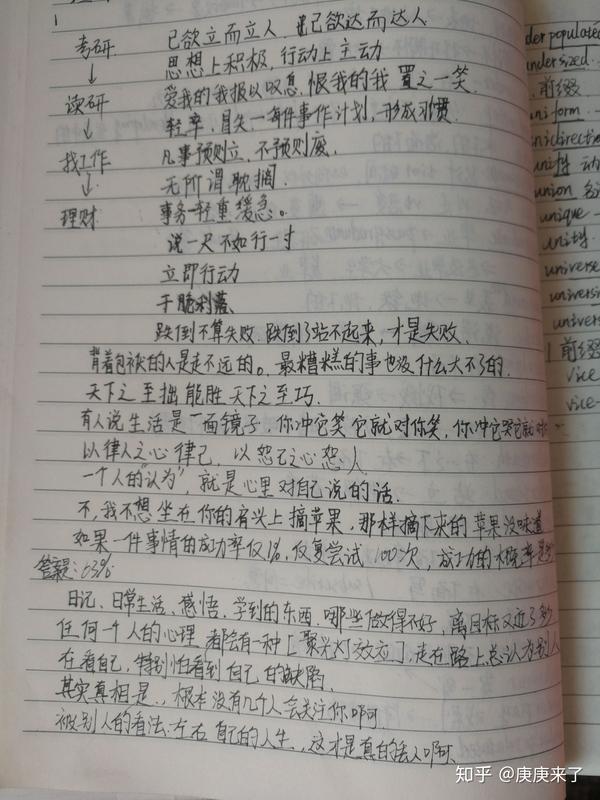 考研 己欲立而立人 己欲达而达人
↓ 思想上积极,行动上主动
读研 爱我的我报以叹息,恨我的我置之一笑
↓ 轻率,冒失一每件事作计划,形成习惯
找工作 凡事预则立,不预则废.
↓ 无所谓耽搁.
理财 事务轻重缓急。
说一尺不如行一寸
立即行动
干脆利落
跌倒不算失败.跌倒了站不起来,才是失败.
背着包袱的人是走不远的。最糟糕的事也没什么大不了的.
天下之至拙能胜天下之至巧.
有人说生活是一面镜子,你冲它笑它就对你笑,你冲它哭它就对
以律人之心律己,以恕己之心恕人
一个人的"认为",就是心里对自己说的话.
不,我不想坐在你的肩头上摘苹果,那样摘下来的苹果没味道
如果一件事情的成功率仅1%,反复尝试100次,成功的概率是
答案:63%
日记、日常生活、感悟、学到的东西.哪些做得不好,离目标又近了多少
任何一个人的心理.都会有一种[聚光灯效应],走在路上总认为别人
在看自己,特别怕看到自己的缺陷.
其实真相是..根本没有几个人会关注你啊
被别人的看法左右自己的人生,这才是真的丢人啊
derpopulated
undersized
前缀
uniform
unidirection
unit
union
unique
unity
universe
universi
univers
前缀
vice
vice-
知乎 @庚庚来了